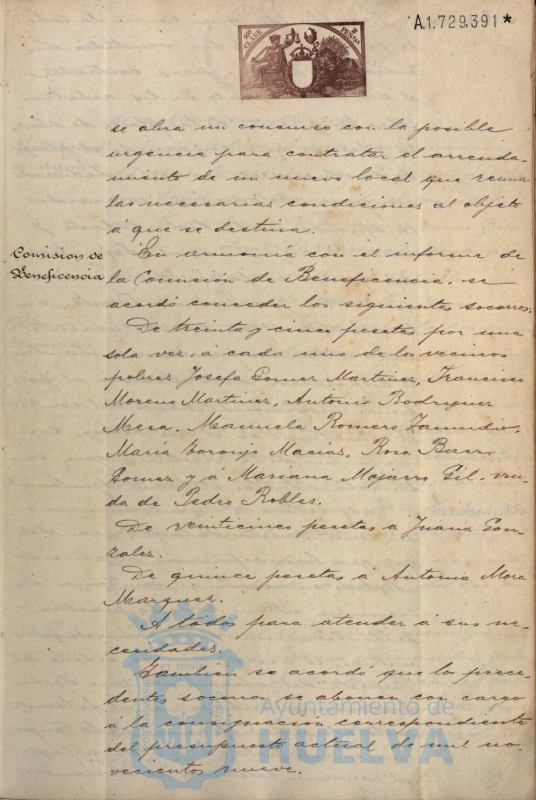 A.1.729.391*
10ª CLASE
2 PESETAS
se abra un concurso con la posible
urgencia para contratar el arrenda-
miento de un nuevo local que reuna
las necesarias condiciones al objeto
á que se destina.
Comision de
Beneficencia
En armonía con el informe de
la Comisión de Beneficencia, se
acordó conceder los siguientes socorros:
De treinta y cinco pesetas por una
sola vez, á cada uno de los vecinos
pobres Josefa Gomez Martinez, Francisco
Moreno Martinez, Antonio Rodriguez
Mesa, Manuela Romero Zamudio,
María Toronjo Macias, Rosa Baez
Gomez y á Mariana Mojarro Gil, viu-
da de Pedro Robles.
De veinticinco pesetas a Juana Gon-
zalez.
De quince pesetas á Antonia Mora
Marquez.
A todos para atender á sus ne-
cesidades.
Tambien se acordó que los prece-
dentes socorros se abonen con cargo
á la consignación correspondiente
del presupuesto actual de mil no-
vecientos nueve.
Ayuntamiento de
HUELVA